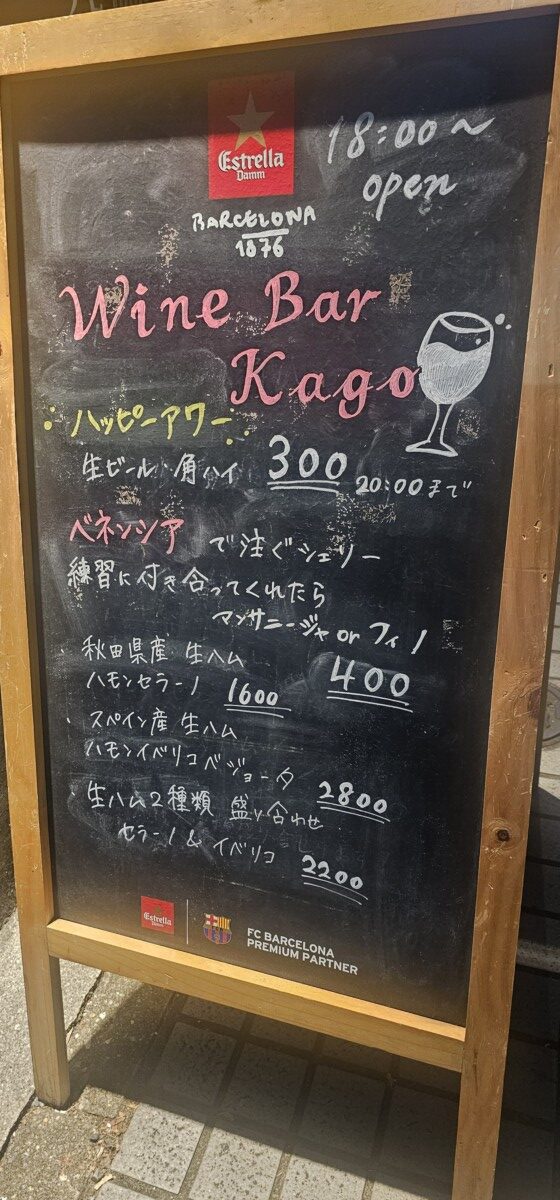 Estrella
Damm
18:00〜
open
BARCELONA
1876
Wine Bar
Kago
ハッピーアワー
生ビール・角ハイ 300 20:00まで
ベネンシア で注ぐシェリー
練習に付き合ってくれたら
マンサニージャ or フィノ
400
・秋田県産 生ハム
ハモンセラーノ 1600
・スペイン産 生ハム
ハモンイベリコベジョータ 2800
・生ハム2種類 盛り合わせ
セラーノ & イベリコ 2200
Estrella
Damm
FC BARCELONA
PREMIUM PARTNER